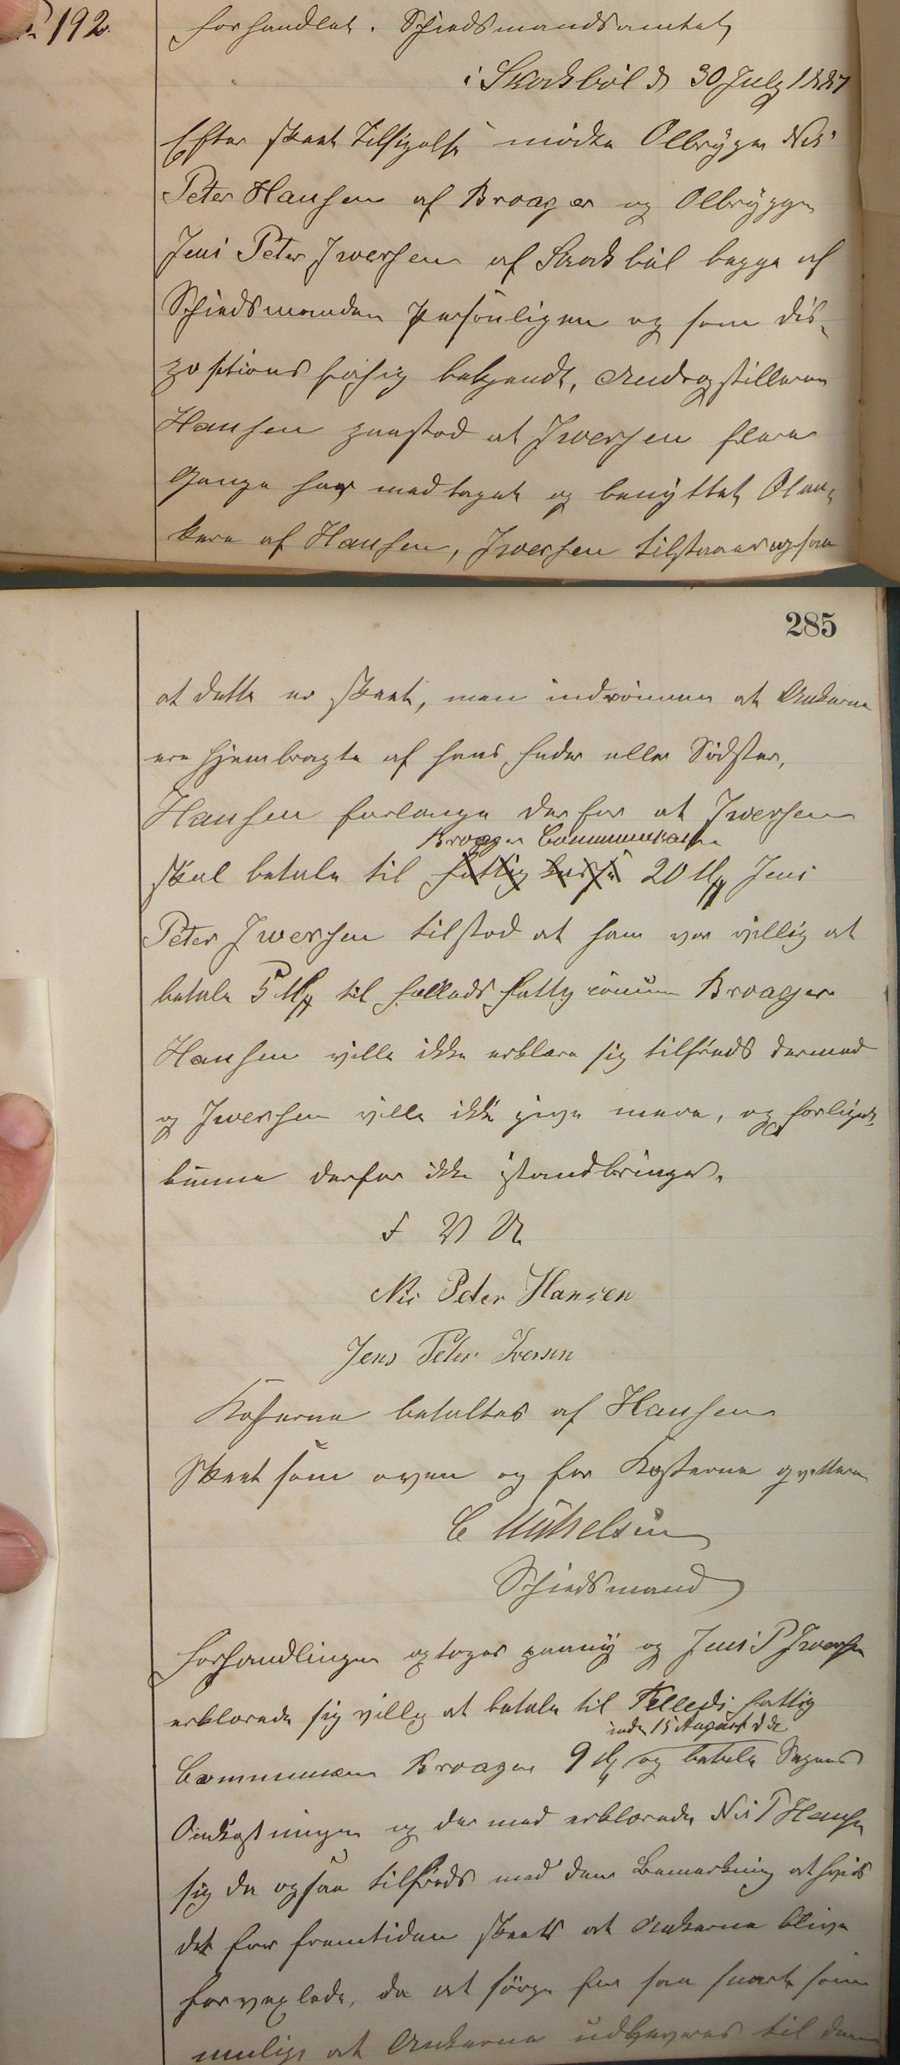 192.
Forhandlet. Schiedsmandsamtet
i Skodsböl d 30 July 1887
Efter skeet Tilsigelse mödte Ölbrÿgger Nis
Peter Hansen af Broager og Ölbrÿgger
Jens Peter Iwersen af Skodsböl begge af
Schiedsmanden personligen og som dis-
positionsfähig bekjendt, Andragstilleren
Hansen paastod at Iwersen flere
Gange har medtaget og benÿttet Ölan-
kere af Hansen, Iwersen tilstaaer ogsaa
285
at dette er skeet, men indrömmer at Ankerne
ere hjembragte af hans Fader eller Södster,
Hansen forlange derfor at Iwersen
Broager Communekasse
skal betale til Fattig Kasse 20 M Jens
Peter Iwersen tilstod at han var villig at
betale 5 M til Felleds Fattig Broager
Hansen ville ikke erklære sig tilfreds dermed
og Iwersen ville ikke give mere, og Forliget
kunne derfor ikke istandbringes.
F V U
Nis Peter Hansen
Jens Peter Iversen
Kosterne betaltes af Hansen
Skeet som oven og for Kosterne qvittere
C Michelsen
Schiedsmand
Forhandlingen optoges paanÿ og Jens P Iwersen
erklærede sig villig at betale til Felleds Fattig
inden 15 August d
Communen Broager 9 M og betale Sagens
Omkostninger og der med erklærede Nis P Hansen
sig da ogsaa tilfreds med den Bemærkning at hvis
det for Fremtiden skeete at Ankerne blive
forvexlede, da at sörge for saa snart som
mulig at Ankerne udleveres til den